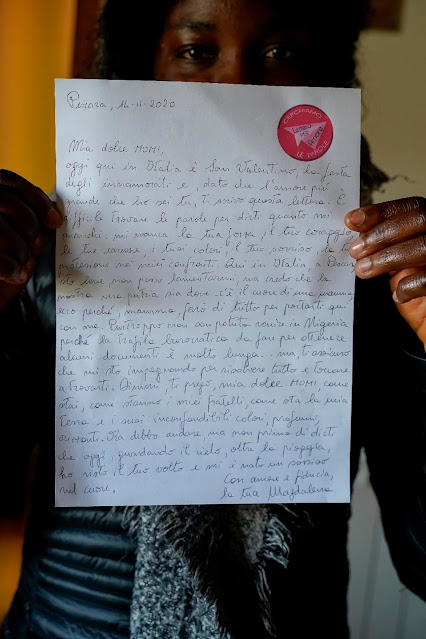 Pescara, 14-II-2020
CERCHIAMO
LE PAROLE
Mia dolce MOMI,
oggi qui in Italia è San Valentino, la festa
degli innamorati e, dato che l'amore più
grande che ho sei tu, ti scrivo questa lettera. È
difficile trovare le parole per dirti quanto mi
manchi: mi manca la tua forza, il tuo coraggio,
le tue carezze, i tuoi colori, il tuo sorriso, la tua
protezione nei miei confronti. Qui in Italia, a Pescara
sto bene, non posso lamentarmi, ma credo che la
nostra vera patria sia dove c'è il cuore di una mamma,
ecco perché, mamma, farò di tutto per portarti qui
con me. Purtroppo non son potuta venire in Nigeria
perché la trafila burocratica da fare per ottenere
alcuni documenti è molto lunga... ma, ti assicuro
che mi sto impegnando per risolvere tutto e tornare
a trovarti. Dimmi, ti prego, mia dolce MOMI, come
stai, come stanno i miei fratelli, come sta la mia
Terra e i suoi inconfondibili colori, profumi,
orizzonti. Ora debbo andare, ma non prima di dirti
che oggi, guardando il cielo, oltre la pioggia,
ho visto il tuo volto e mi è nato un sorriso
nel cuore.
Con amore e fiducia,
la tua Magdalena